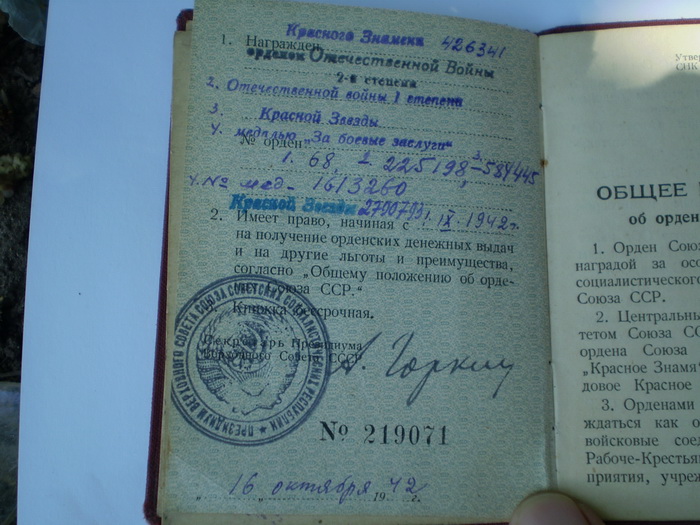 Красного Знамени 426341
1. Награжден
орденом Отечественной Войны
2-й степени
2. Отечественной войны 1 степени
3. Красной Звезды
4. медалью „За боевые заслуги“
№ орден
1. 68 2. 225198 – 3. 584445
4. № мед. – 1613260
Красной Звезды 2790793
2. Имеет право, начиная с 1. IX 1942 г.
на получение орденских денежных выдач
и на другие льготы и преимущества,
согласно „Общему положению об орде-
Союза ССР.“
3. Книжка бессрочная.
Секретарь Президиума
Верховного Совета СССР
А. Горкин
ПРЕЗИДИУМ ВЕРХОВНОГО СОВЕТА СОЮЗА СОВЕТСКИХ СОЦИАЛИСТИЧЕСКИХ РЕСПУБЛИК
№ 219071
„16 октября 1942 г.
Утвер
СНК
ОБЩЕЕ
об орден
1. Орден Сою
наградой за осо
социалистического
Союза ССР.
2. Центральны
тетом Союза СС
ордена Союза
„Красное Знамя“
довое Красное
3. Орденами
ждаться как о
войсковые соед
Рабоче-Крестья
приятия, учреж